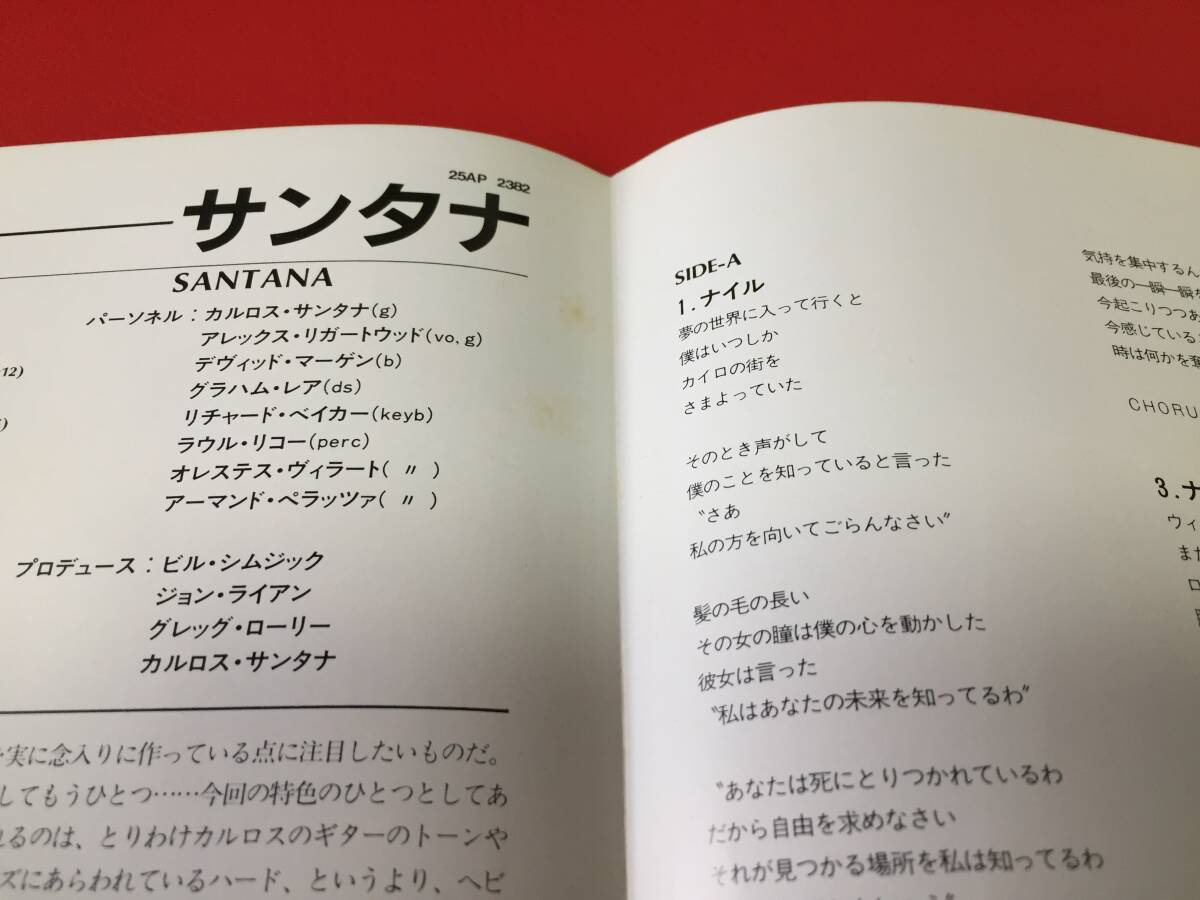 25AP 2382
サンタナ
SANTANA
パーソネル：カルロス・サンタナ(g)
アレックス・リガートウッド(vo, g)
デヴィッド・マーゲン(b)
グラハム・レア(ds)
リチャード・ベイカー(keyb)
ラウル・リコー(perc)
オレステス・ヴィラート( 〃 )
アーマンド・ペラッツァ( 〃 )
12)
プロデュース：ビル・シムジック
ジョン・ライアン
グレッグ・ローリー
カルロス・サンタナ
実に念入りに作っている点に注目したいものだ。
してもうひとつ……今回の特色のひとつとしてあ
れるのは、とりわけカルロスのギターのトーンや
ズにあらわれているハード、というより、ヘビ
SIDE-A
1.ナイル
夢の世界に入って行くと
僕はいつしか
カイロの街を
さまよっていた
そのとき声がして
僕のことを知っていると言った
〝さあ
私の方を向いてごらんなさい〞
髪の毛の長い
その女の瞳は僕の心を動かした
彼女は言った
〝私はあなたの未来を知ってるわ〞
〝あなたは死にとりつかれているわ
だから自由を求めなさい
それが見つかる場所を私は知ってるわ
気持を集中するん
最後の一瞬一瞬を
今起こりつつあ
今感じている
時は何かを奪
CHORU
3.ナ
ウィ
また
ロ